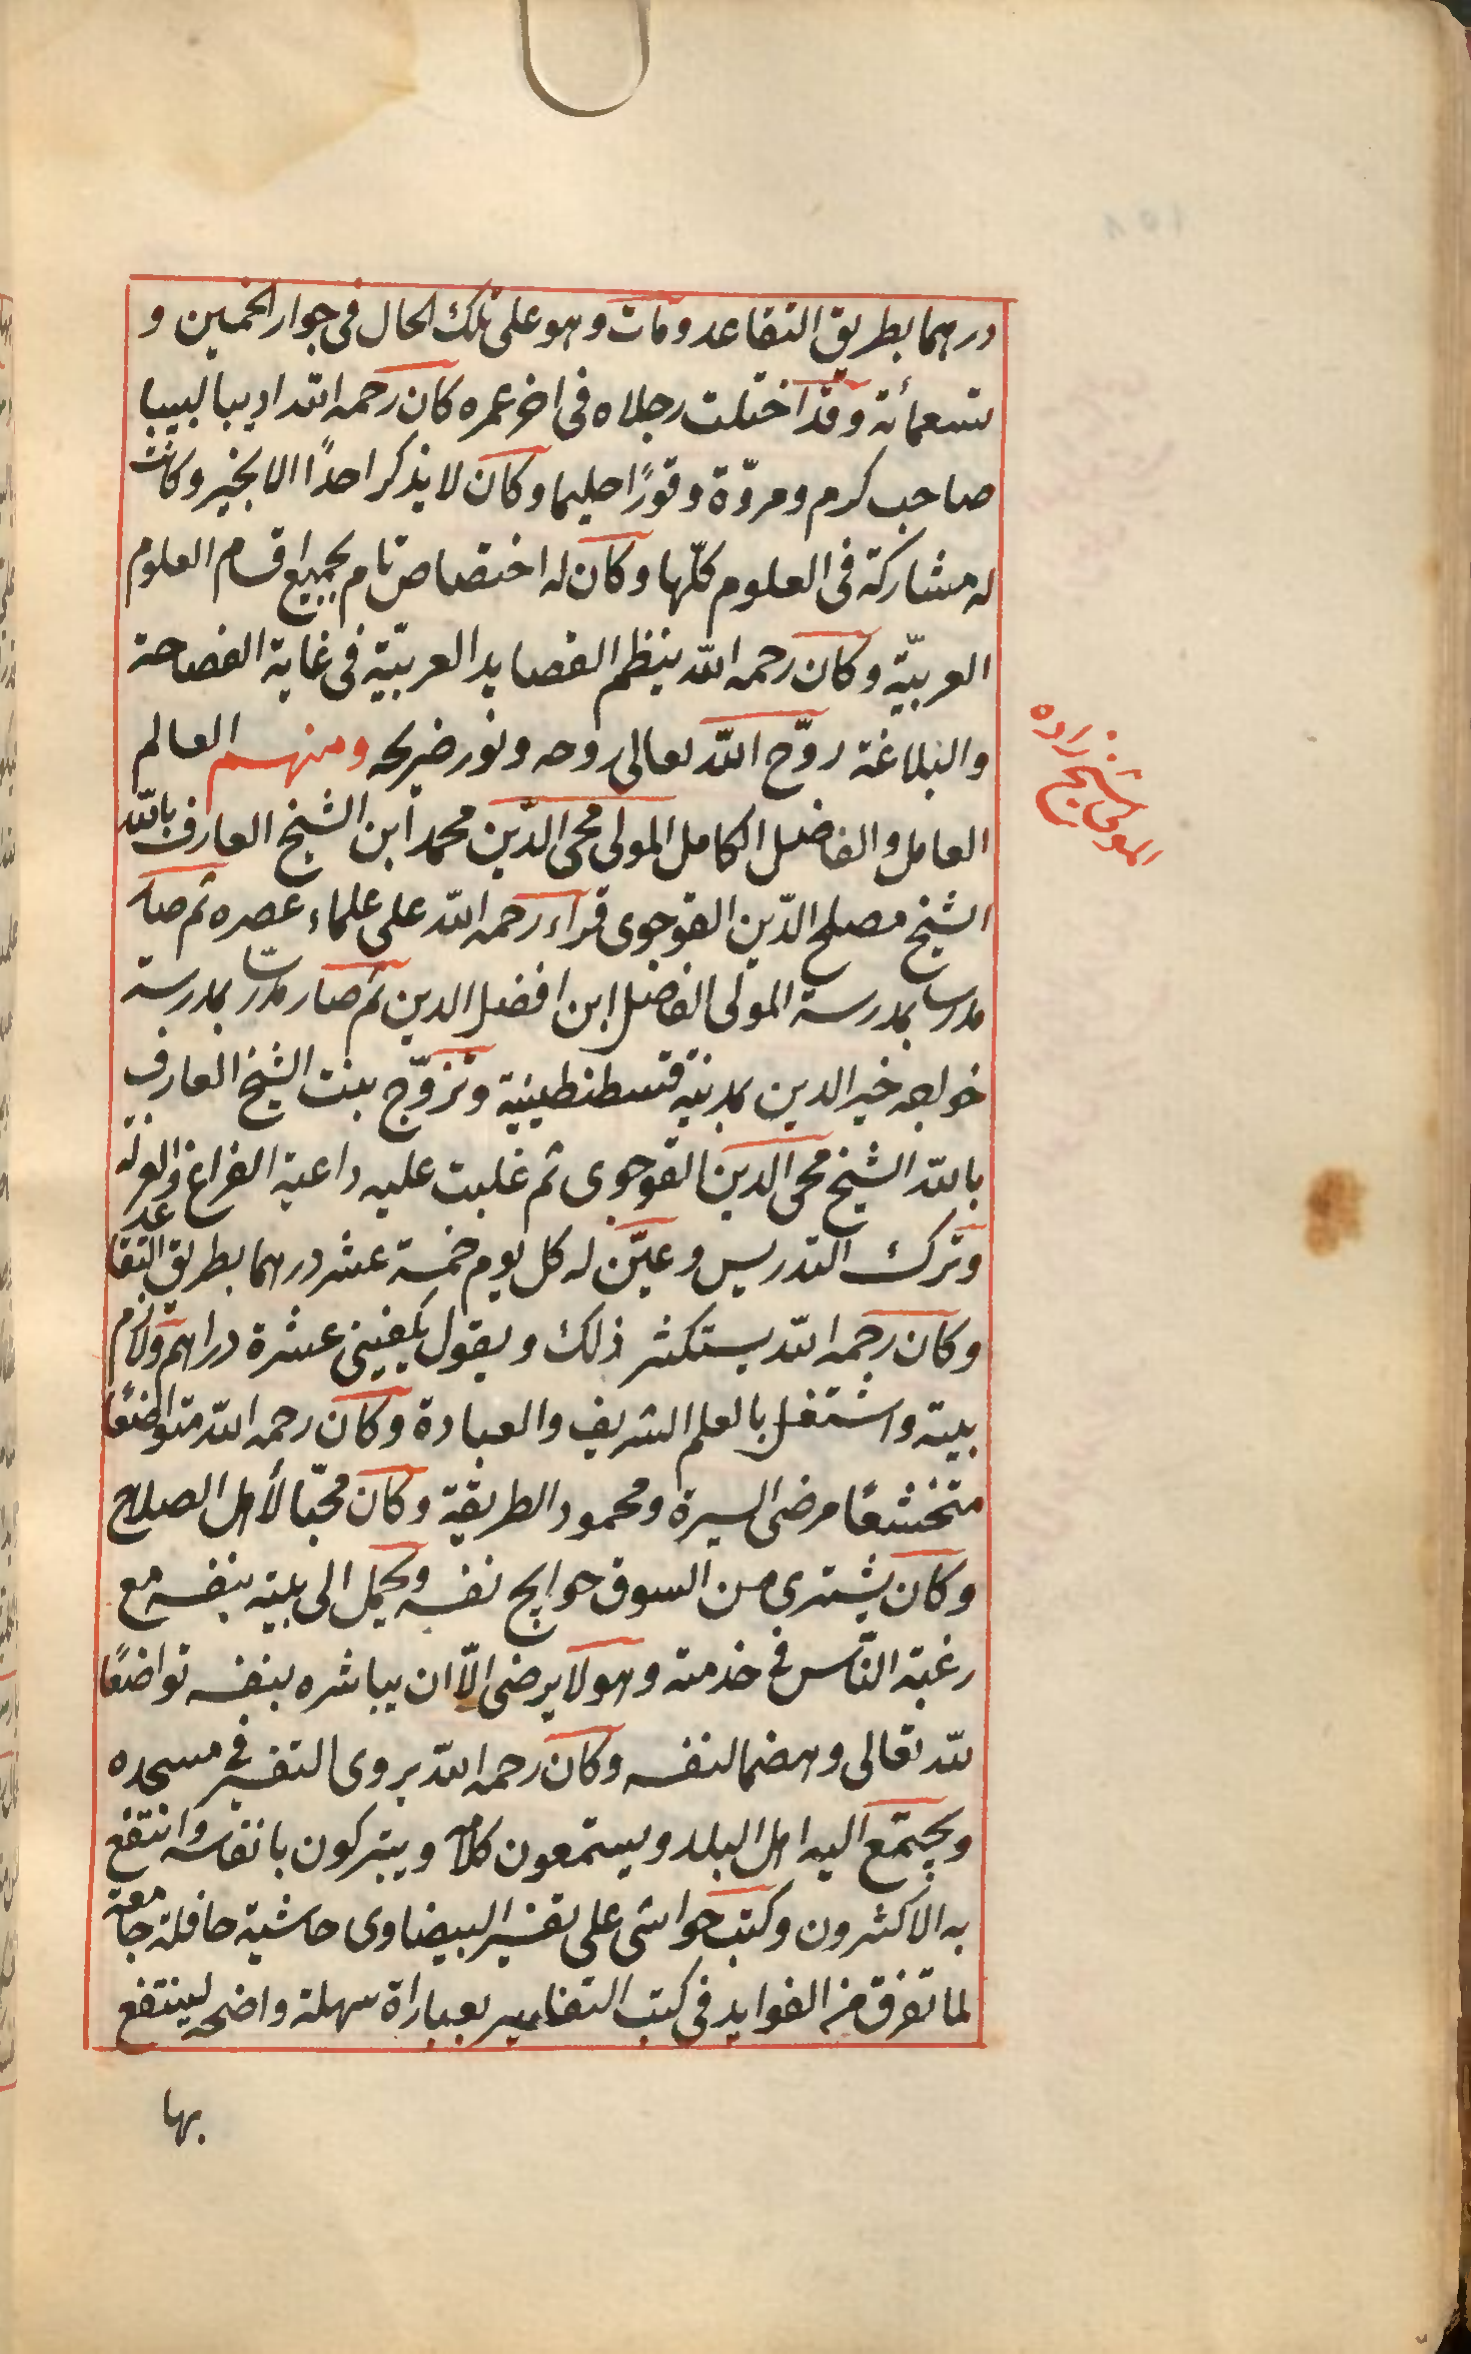 درهما بطريق التقاعد ومات وهو على تلك الحال فى جوار الخمسين و
تسعمائة وقد اختلت رجلاه فى اخر عمره كان رحمه الله اديبا لبيبا
صاحب كرم ومروّة وقورًا حليما وكان لا يذكر احدًا الا بخير وكانت
له مشاركة فى العلوم كلّها وكان له اختصاص تام بجميع اقسام العلوم
العربيّة وكان رحمه الله ينظم القصايد العربيّة فى غاية الفصاحة
والبلاغة روّح الله تعالى روحه ونور ضريحه ومنهم العالم
المولى شيخ زاده
العامل والفاضل الكامل المولى محى الدّين محمد ابن الشيخ العارف بالله
الشيخ مصلح الدّين القوجوى قراء رحمه الله على علماء عصره ثم صار
مدرسا بمدرسة المولى الفاضل ابن افضل الدين ثم صار مدرسا بمدرسة
خواجه خير الدين بمدينة قسطنطينية وتزوّج بنت الشيخ العارف
بالله الشيخ محى الدين القوجوى ثم غلبت عليه داعية الفراغ والعزلة
وترك التدريس وعيّن له كل يوم خمسة عشر درهما بطريق التقاعد
وكان رحمه الله يستكثر ذلك ويقول يكفينى عشرة دراهم ولازم
بيته واشتغل بالعلم الشريف والعبادة وكان رحمه الله متواضعًا
متخشعًا مرضى السيرة ومحمود الطريقة وكان محبّا لأهل الصلاح
وكان يشترى من السوق حوايج نفسه ويحمل الى بيته بنفسه مع
رغبة النّاس فى خدمته وهو لا يرضى الّا ان يباشره بنفسه تواضعًا
لله تعالى وهضما لنفسه وكان رحمه الله يروى التفسير فى مسجده
ويجتمع اليه اهل البلد ويستمعون كلامه ويتبركون بانفاسه وانتفع
به الاكثرون وكتب حواشى على تفسير البيضاوى حاشية حافلة جامعة
لما تفرق من الفوايد فى كتب التفاسير بعباراة سهلة واضحه لينتفع
بها